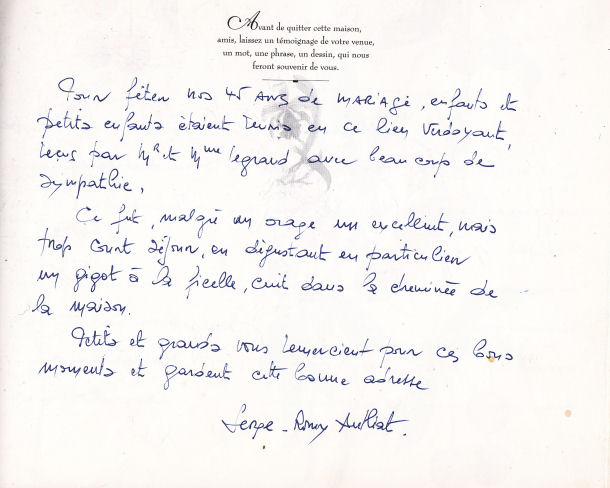 Avant de quitter cette maison,
amis, laissez un témoignage de votre venue,
un mot, une phrase, un dessin, qui nous
feront souvenir de vous.
Pour fêter nos 45 ANS de MARIAGE, enfants et
petits enfants étaient réunis en ce lieu verdoyant,
reçus par Mr et Mme Legrand avec beaucoup de
sympathie.
Ce fut, malgré un orage un excellent, mais
trop court séjour, en dégustant en particulier
un gigot à la ficelle, cuit dans la cheminée de
la maison.
Petits et grands vous remercient pour ces bons
moments et gardent cette bonne adresse
Serge - Romy